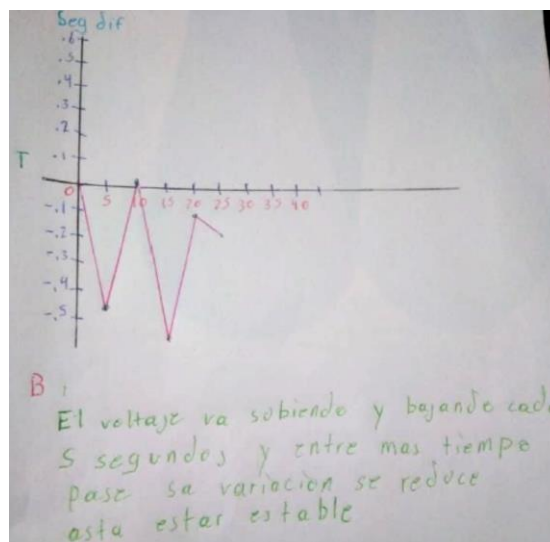 Seg dif
.6
.5
.4
.3
.2
T
.1
0
5 10 15 20 25 30 35 40
-.1
-.2
-.3
-.4
-.5
B :
El voltaje va subiendo y bajando cad
5 segundos y entre mas tiempo
pase sa variacion se reduce
asta estar estable